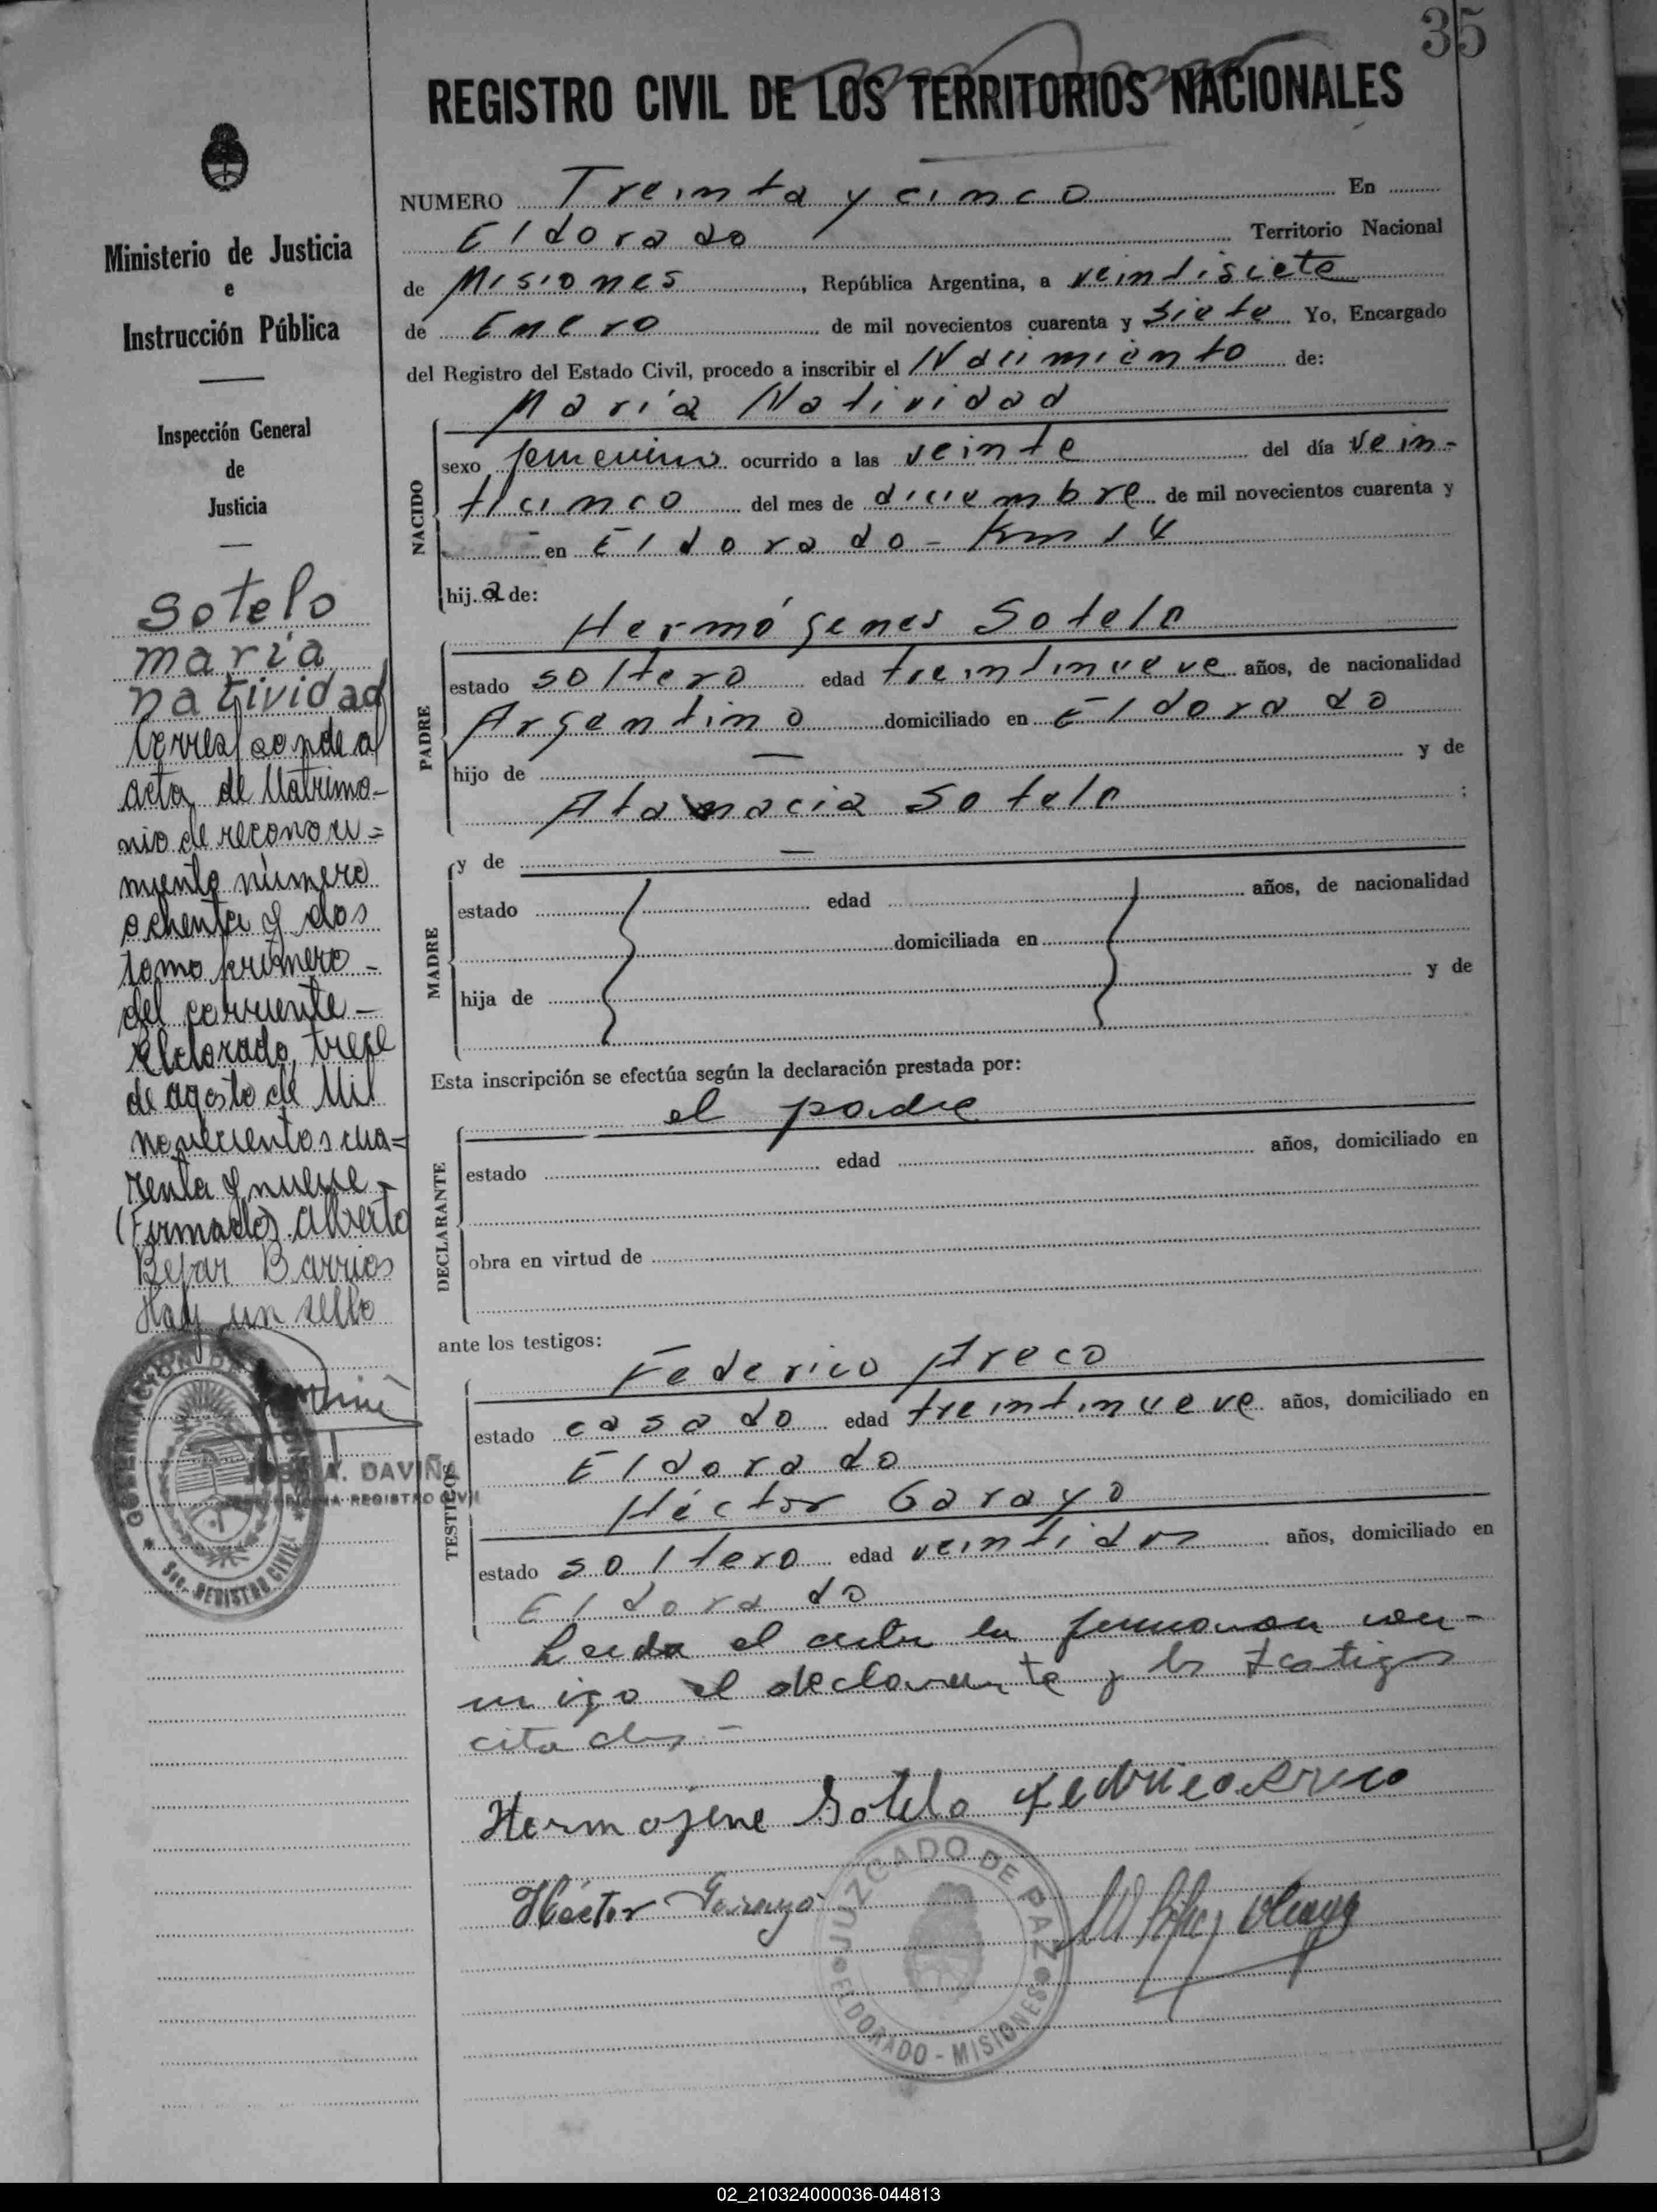 35
REGISTRO CIVIL DE LOS TERRITORIOS NACIONALES
Ministerio de Justicia
e
Instrucción Pública
Inspección General
de
Justicia
Sotelo
maria
natividad
Corresponde al
acta de Matrimo-
nio de reconoci=
miento número
ochenta y dos
tomo primero -
del corriente -
Eldorado, trece
de agosto de Mil
novecientos cua=
renta y nueve -
(Firmado) Alberto
Bejar Barrios
Hay un sello
GOBERNACION DE MISIONES
Sec. REGISTRO CIVIL
JOSE A. DAVIÑA
REGISTRO CIVIL
NUMERO Treinta y cinco En
Eldorado Territorio Nacional
de Misiones, República Argentina, a veintisiete
de Enero de mil novecientos cuarenta y siete Yo, Encargado
del Registro del Estado Civil, procedo a inscribir el Nacimiento de:
María Natividad
NACIDO
sexo femenino ocurrido a las veinte del día vein-
ticinco del mes de diciembre de mil novecientos cuarenta y
en Eldorado - Km 14
hija de:
Hermógenes Sotelo
PADRE
estado soltero edad treintinueve años, de nacionalidad
Argentino domiciliado en Eldorado
hijo de — y de
Atanacia Sotelo ;
MADRE
y de —
estado edad años, de nacionalidad
domiciliada en
hija de y de
Esta inscripción se efectúa según la declaración prestada por:
el padre
DECLARANTE
estado edad años, domiciliado en
obra en virtud de
ante los testigos:
Federico Areco
TESTIGOS
estado casado edad treintinueve años, domiciliado en
Eldorado
Héctor Garayo
estado soltero edad veintidos años, domiciliado en
Eldorado
Leida el acta la firmaron con-
migo el declarante y los testigos
citados -
Hermojene Sotelo Federico Areco
Héctor Garayo
JUZGADO DE PAZ
ELDORADO - MISIONES
02_210324000036-044813